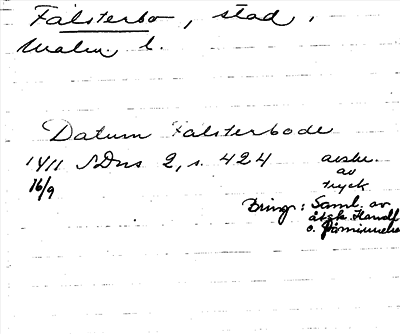 Falsterbo, stad.
Malm. l.
Datum Falsterbode
1411 SDns 2, s. 424 avskr.
16/9 av
tryck
Bring: Saml. av
åtsk. Handl.
o. Påminnelse